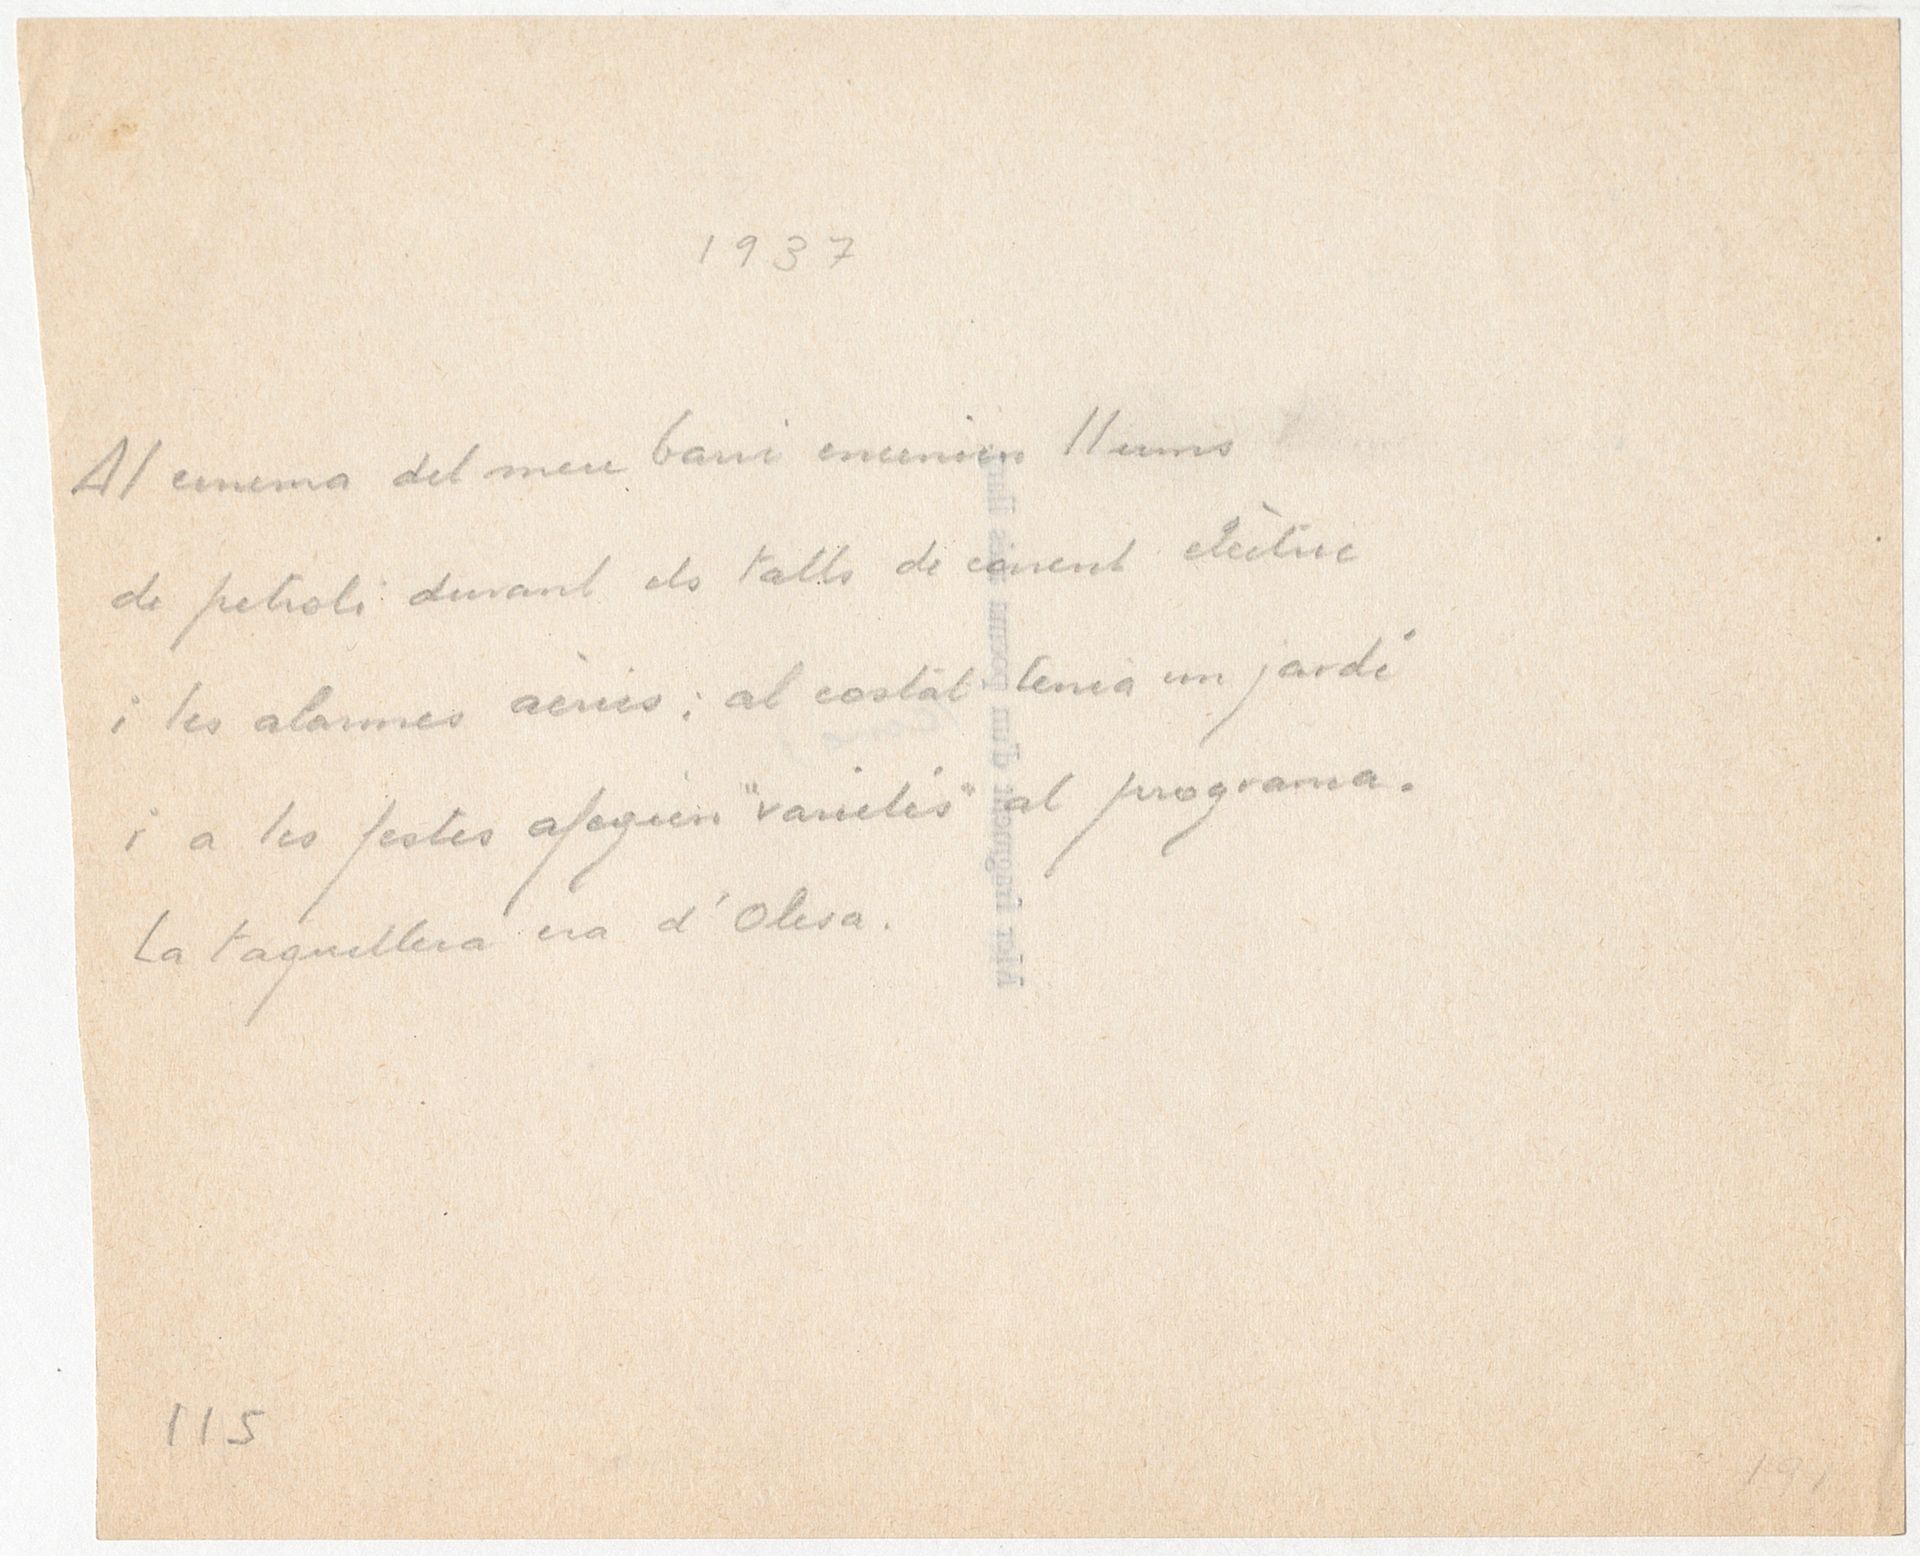 1937
Al cinema del meu barri encenien llums
de petroli durant els talls de corrent elèctric
i les alarmes aèries; al costat tenia un jardí
i a les festes afegien "varietés" al programa.
La taquillera era d'Olesa.
115
191